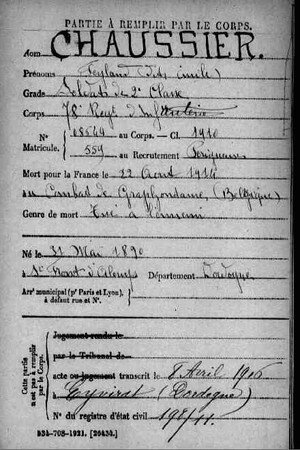 PARTIE À REMPLIR PAR LE CORPS.
Nom CHAUSSIER.
Prénoms Leyland (dit Emile)
Grade Soldat de 2e Classe
Corps 78e Régt d'Infanterie
N° 08549 au Corps. — Cl. 1910
Matricule. 559 au Recrutement Périgueux
Mort pour la France le 22 Août 1914
au Combat de (Belgique)
Genre de mort Tué à l'ennemi
Né le 31 Mai 1890
à St Front d'Alemps Département Dordogne
Arr^t municipal (p^r Paris et Lyon),
à défaut rue et N°.
Cette partie
n'est pas à remplir
par le Corps.
Jugement rendu le
par le Tribunal de
acte ou jugement transcrit le 8 Avril 1916
Eyvirat (Dordogne)
N° du registre d'état civil
534-708-1921. [26434.]